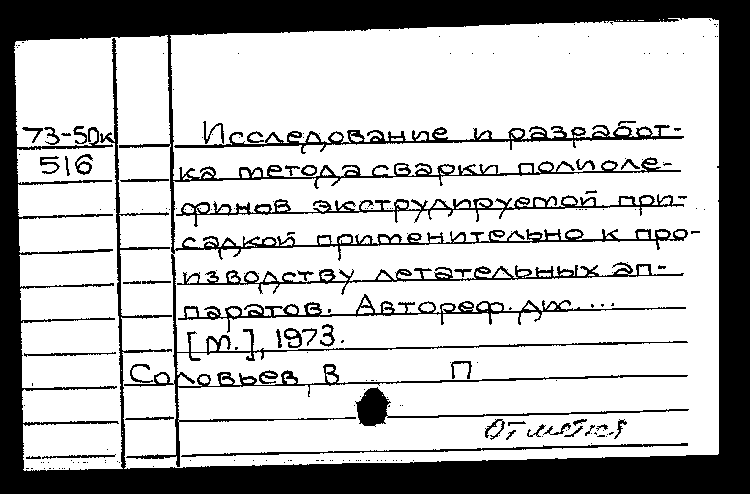 73-50к
516
Исследование и разработ-
ка метода сварки полиоле-
финов экструдируемой при-
садкой применительно к про-
изводству летательных ап-
паратов. Автореф. дис....
[М.], 1973.
Соловьев, В П